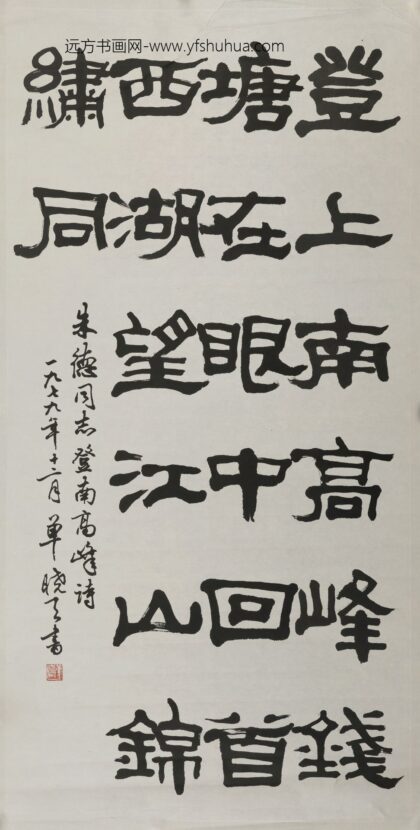 远方书画网-www.yfshuhua.com
登上南高峰錢
塘在眼中回首
西湖望江山錦
繡同
朱德同志登南高峰诗
一九七九年十二月單曉天書